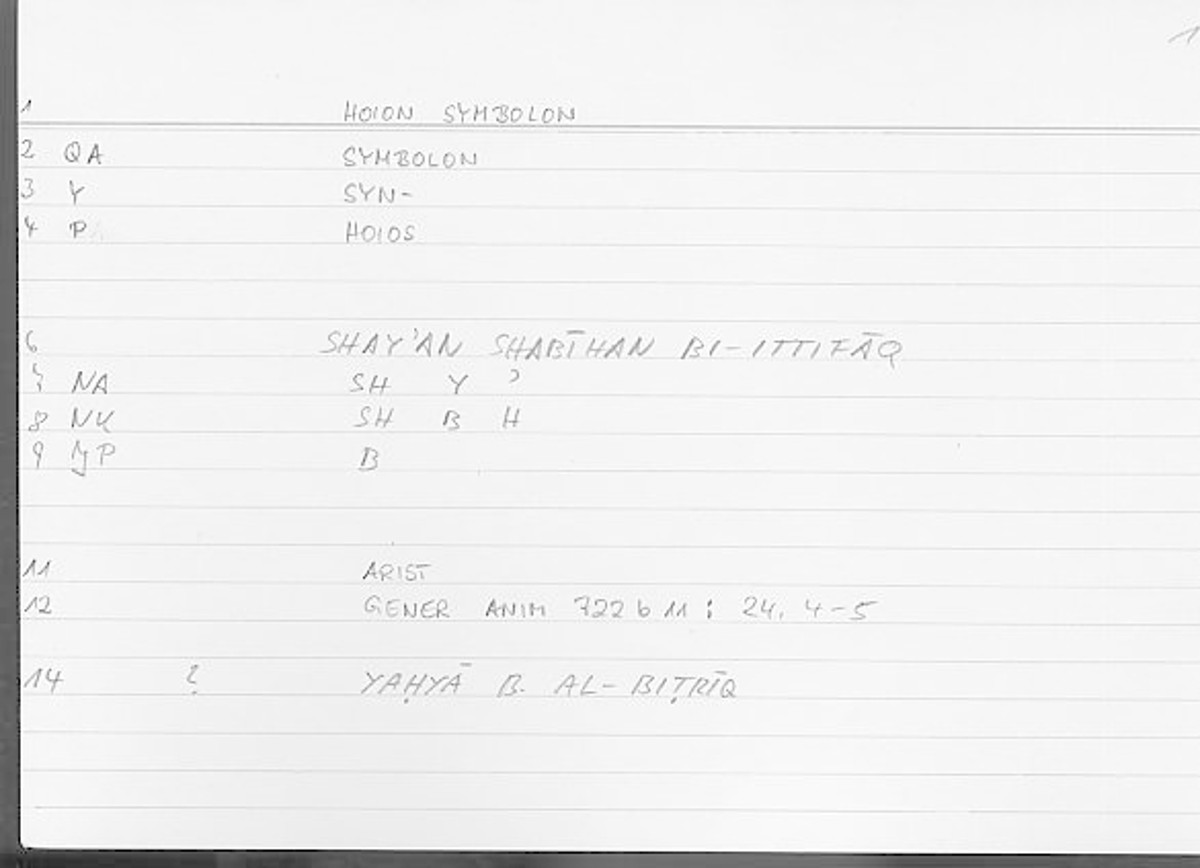 1
1 HOION SYMBOLON
2 QA SYMBOLON
3 Y SYN-
4 P HOIOS
6 SHAY'AN SHABĪHAN BI-ITTIFĀQ
7 NA SH Y ʾ
8 NK SH B H
9 P B
11 ARIST
12 GENER ANIM 722 b 11 : 24, 4-5
14 ? YAḤYĀ B. AL-BIṬRĪQ